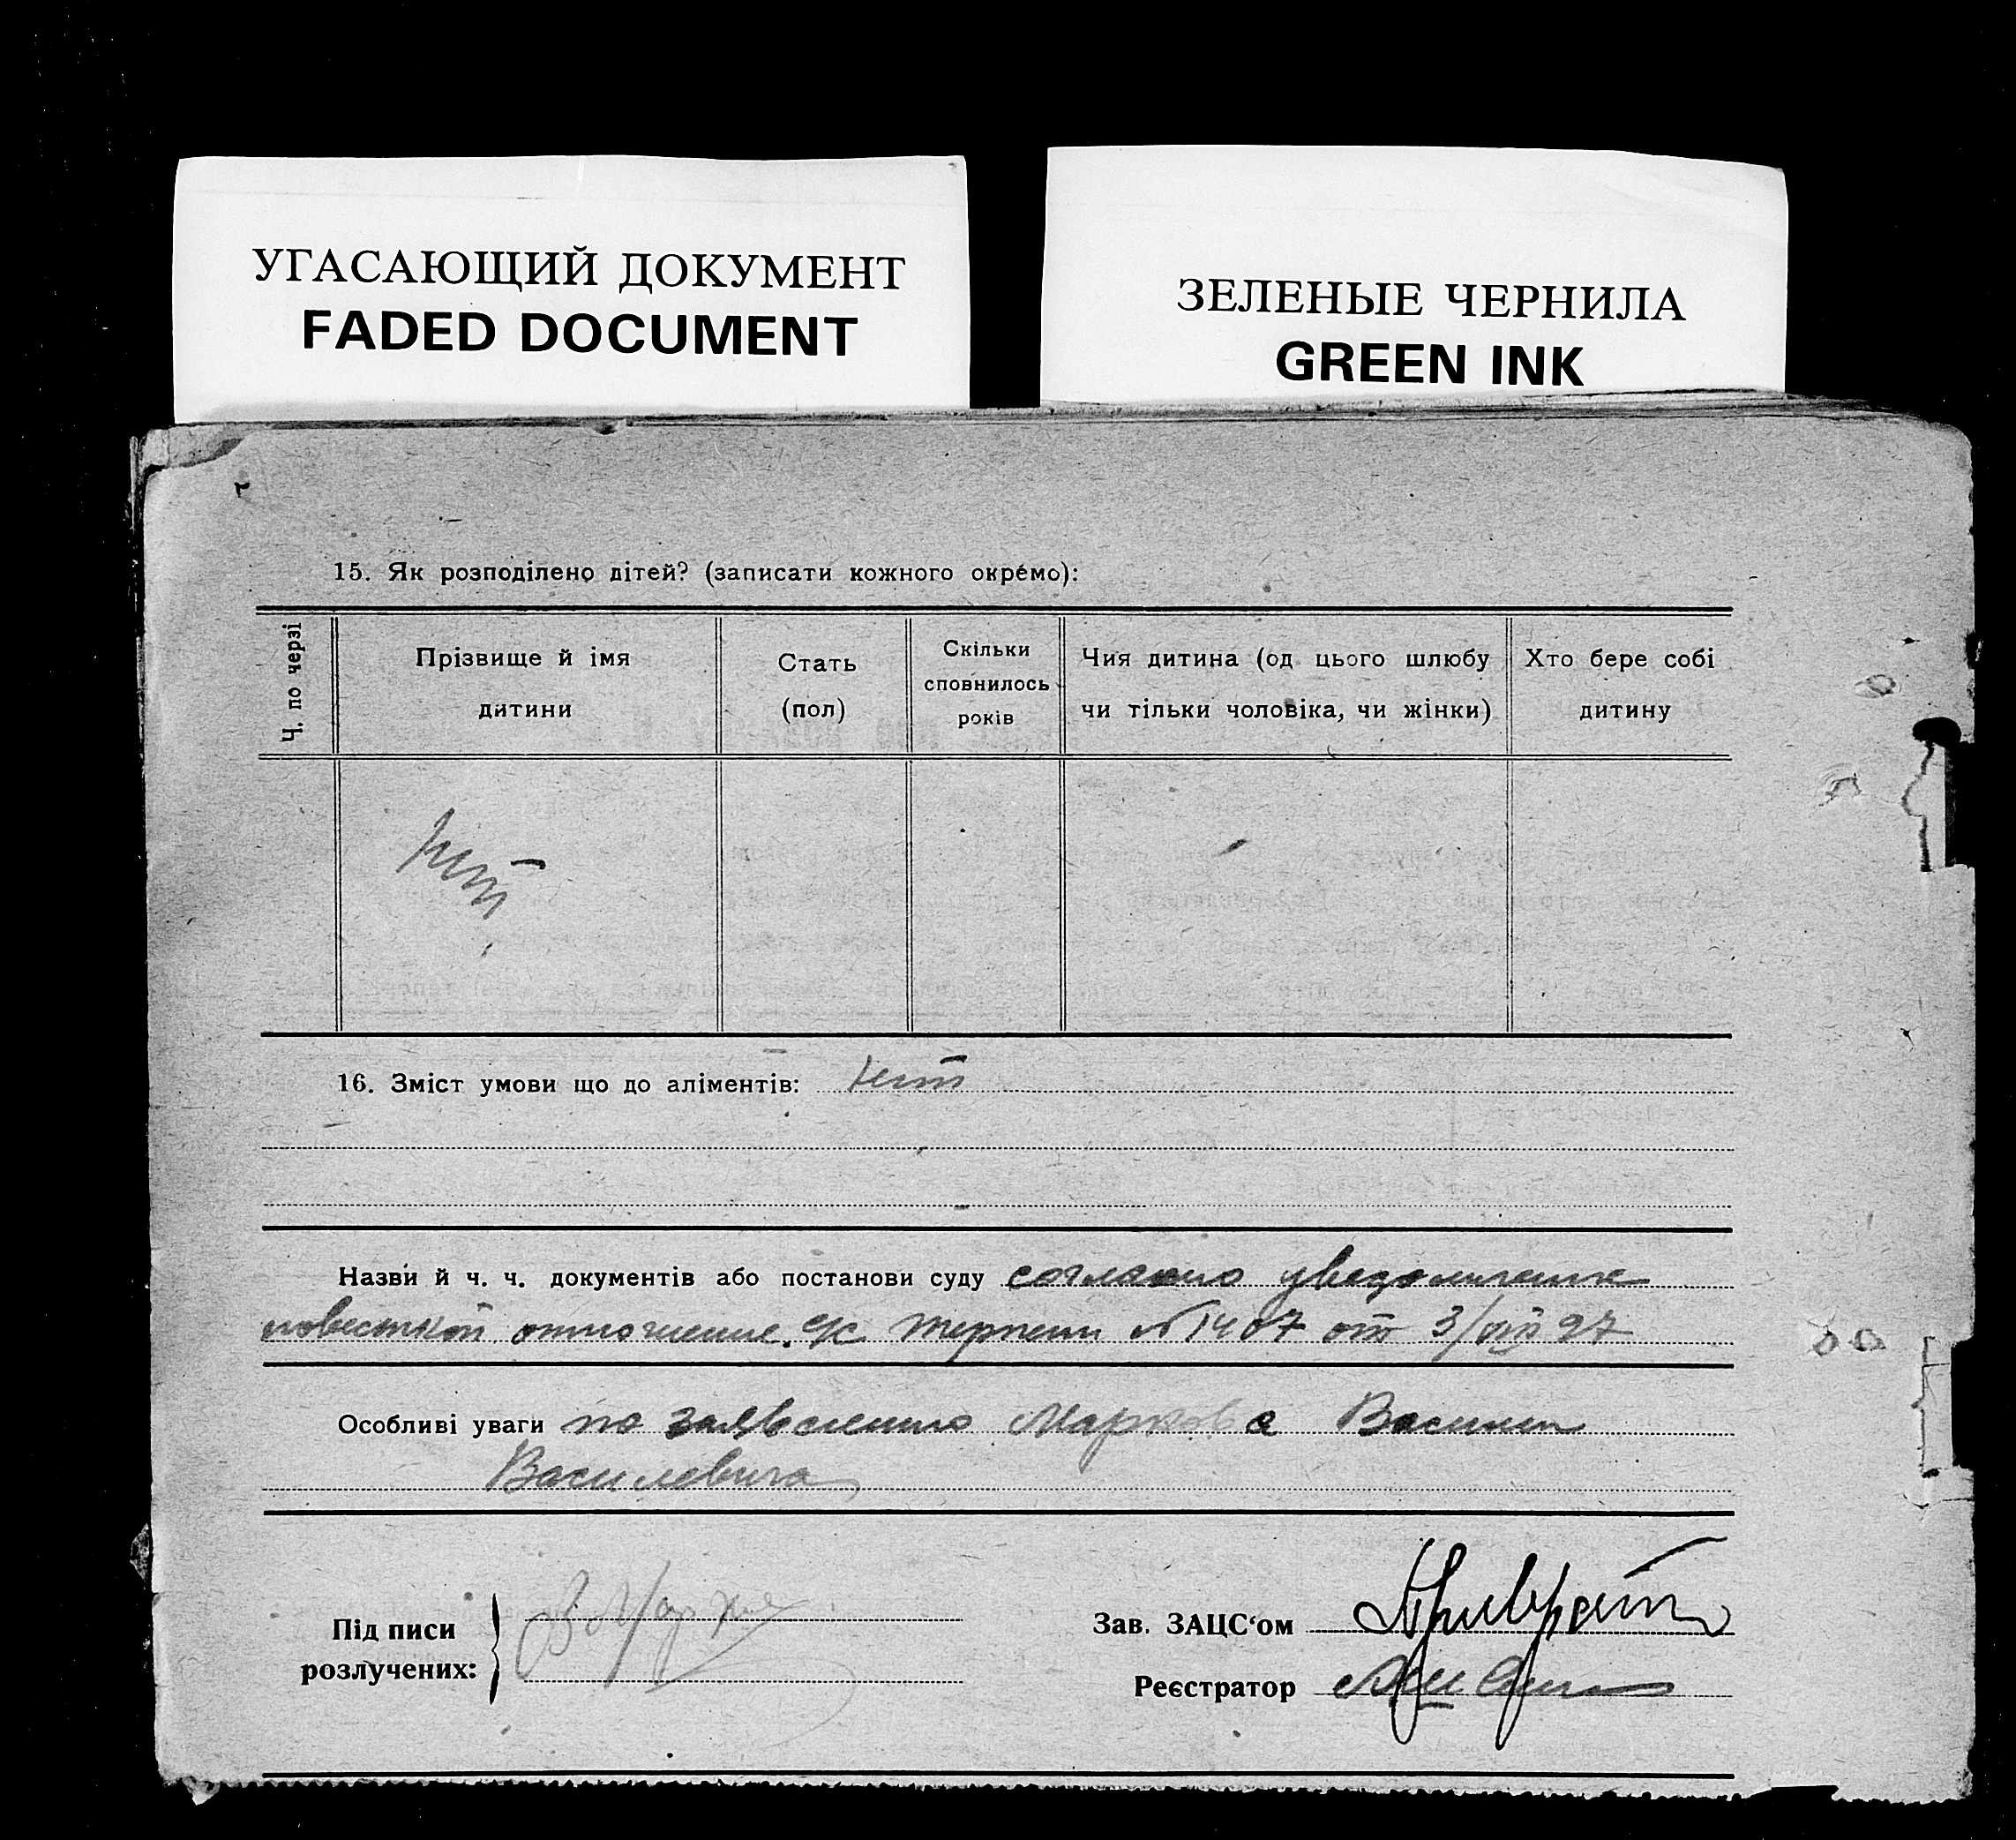 УГАСАЮЩИЙ ДОКУМЕНТ
FADED DOCUMENT
ЗЕЛЕНЫЕ ЧЕРНИЛА
GREEN INK
15. Як розподілено дітей? (записати кожного окремо):
Ч. по черзі
Прізвище й імя
дитини
Стать
(пол)
Скільки
сповнилось
років
Чия дитина (од цього шлюбу
чи тільки чоловіка, чи жінки)
Хто бере собі
дитину
нет
16. Зміст умови що до аліментів: нет
Назви й ч. ч. документів або постанови суду согласно уведомления
повесткой отношение N 1407 от 3/ 27
Особливі уваги по заявлению Маркова Василия
Василевича
Під писи
розлучених:
Зав. ЗАЦС‘ом
Реєстратор